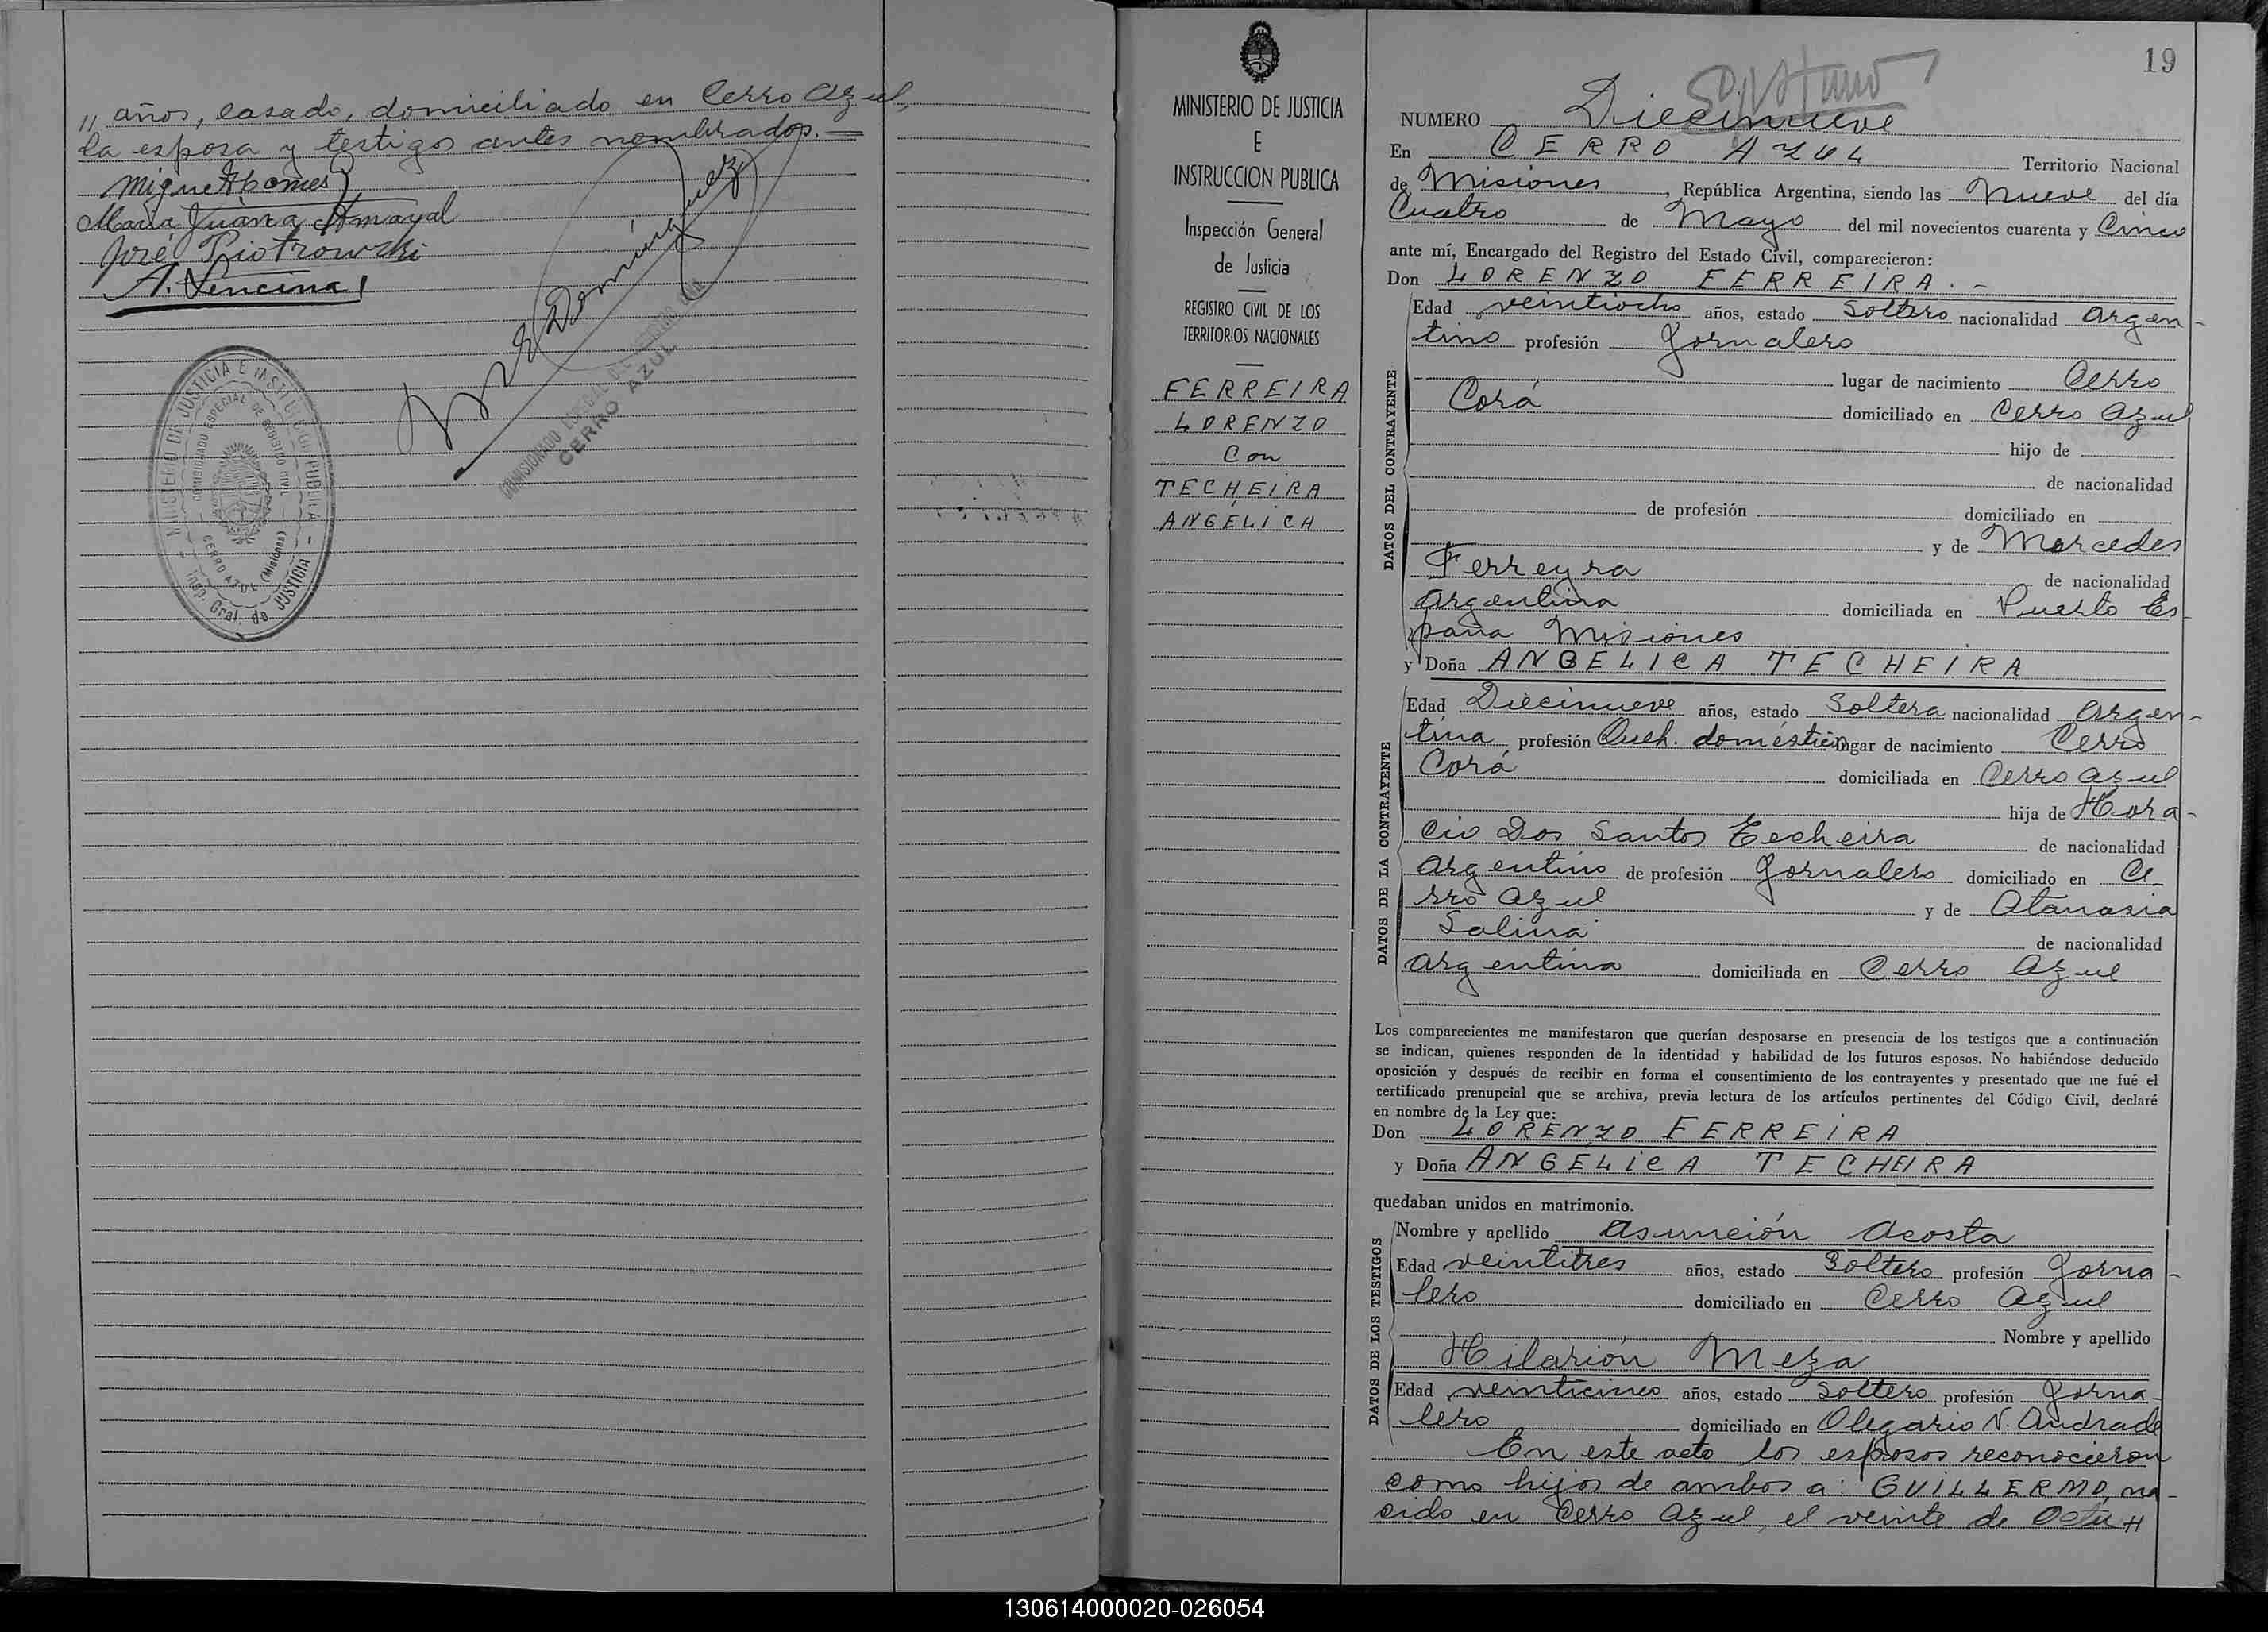 " años, casado, domiciliado en Cerro Azul,
la esposa y testigos antes nombrados.=
Miguel Gomes
Maria Juana Amayal
José Piotrowski
A. Lencina
Dominguez
COMISIONADO ESPECIAL DE REGISTRO CIVIL
CERRO AZUL
MINISTERIO DE JUSTICIA E INSTRUCCION PUBLICA
COMISIONADO ESPECIAL DE REGISTRO CIVIL
CERRO AZUL (Misiones)
Insp. Gral. de JUSTICIA
MINISTERIO DE JUSTICIA
E
INSTRUCCION PUBLICA
Inspección General
de Justicia
REGISTRO CIVIL DE LOS
TERRITORIOS NACIONALES
FERREIRA
LORENZO
Con
TECHEIRA
ANGÉLICA
19
NUMERO Diecinueve
En CERRO AZUL Territorio Nacional
de Misiones, República Argentina, siendo las Nueve del día
Cuatro de Mayo del mil novecientos cuarenta y Cinco
ante mí, Encargado del Registro del Estado Civil, comparecieron:
Don LORENZO FERREIRA.-
DATOS DEL CONTRAYENTE
Edad veintiocho años, estado Soltero nacionalidad Argen-
tino profesión Jornalero
lugar de nacimiento Cerro
Corá domiciliado en Cerro Azul
hijo de
de nacionalidad
de profesión domiciliado en
y de Mercedes
Ferreyra de nacionalidad
Argentina domiciliada en Puerto Es
paña Misiones
y Doña ANGÉLICA TECHEIRA
DATOS DE LA CONTRAYENTE
Edad Diecinueve años, estado Soltera nacionalidad Argen-
tina profesión Queh. domésticos lugar de nacimiento Cerro
Corá domiciliada en Cerro Azul
hija de Hora-
cio Dos Santos Techeira de nacionalidad
Argentino de profesión Jornalero domiciliado en Ce
rro Azul y de Atanasia
Salina de nacionalidad
Argentina domiciliada en Cerro Azul
Los comparecientes me manifestaron que querían desposarse en presencia de los testigos que a continuación
se indican, quienes responden de la identidad y habilidad de los futuros esposos. No habiéndose deducido
oposición y después de recibir en forma el consentimiento de los contrayentes y presentado que me fué el
certificado prenupcial que se archiva, previa lectura de los artículos pertinentes del Código Civil, declaré
en nombre de la Ley que:
Don LORENZO FERREIRA
y Doña ANGÉLICA TECHEIRA
quedaban unidos en matrimonio.
DATOS DE LOS TESTIGOS
Nombre y apellido Asunción Acosta
Edad veintitres años, estado Soltero profesión Jorna-
lero domiciliado en Cerro Azul
Nombre y apellido
Hilarión Meza
Edad veinticinco años, estado Soltero profesión Jorna-
lero domiciliado en Olegario V. Andrade
En este acto los esposos reconocieron
como hijos de ambos a: GUILLERMO, na-
cido en Cerro Azul, el veinte de Octu
130614000020-026054